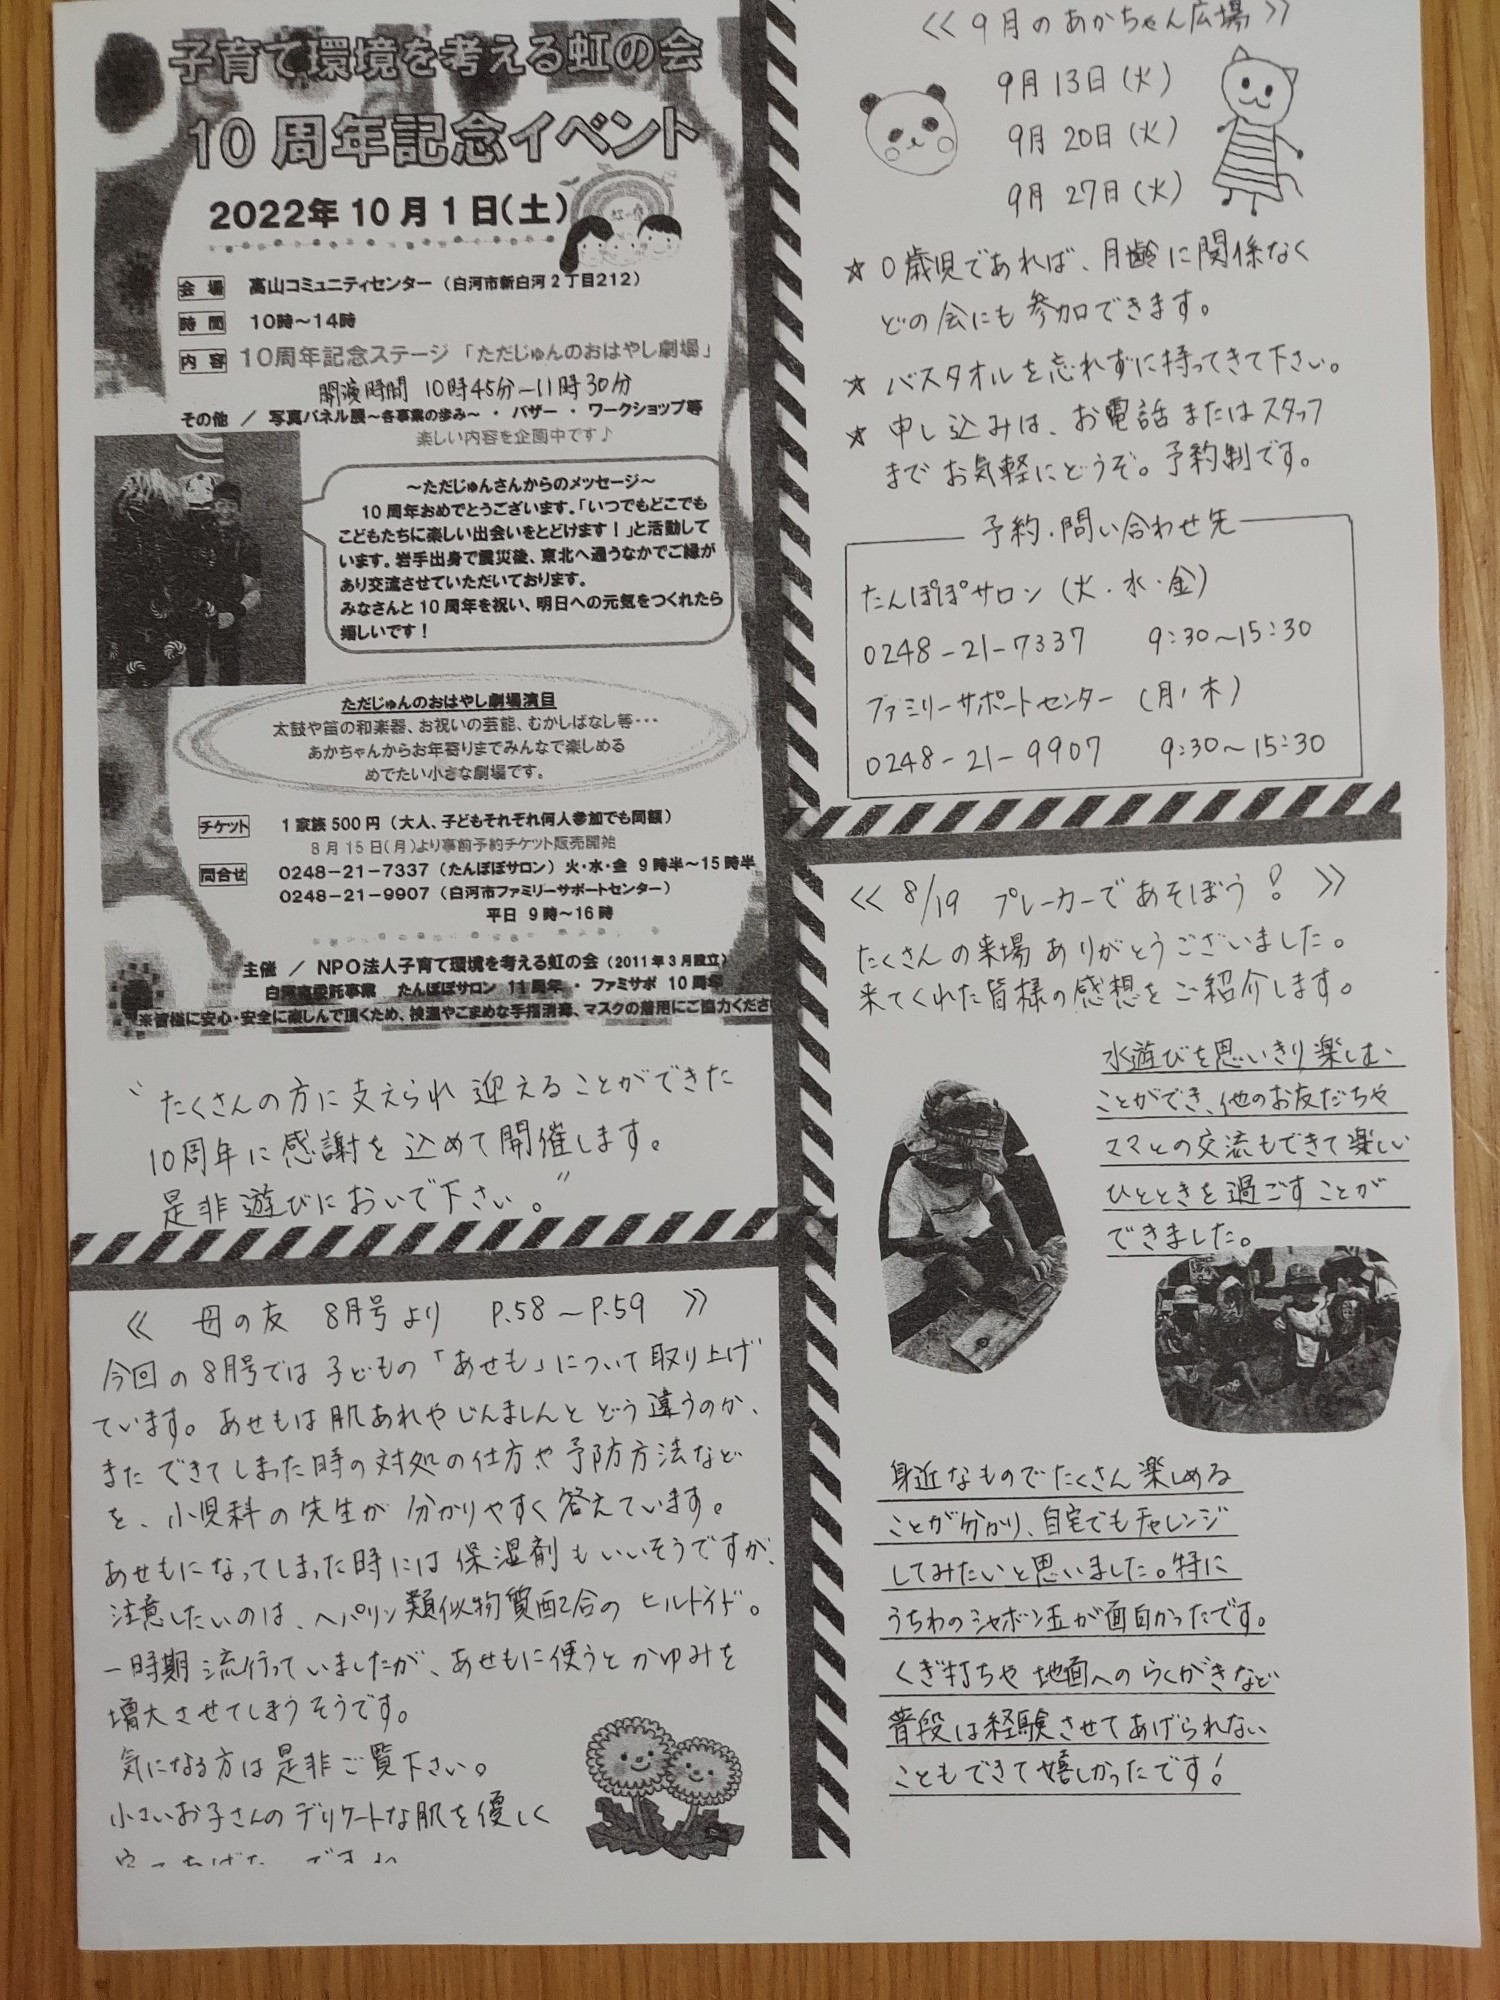 子育て環境を考える虹の会
10周年記念イベント
2022年10月1日(土)
虹の会
会場 高山コミュニティセンター（白河市新白河2丁目212）
時間 10時～14時
内容 10周年記念ステージ「ただじゅんのおはやし劇場」
開演時間 10時45分―11時30分
その他 ／ 写真パネル展～各事業の歩み～ ・ バザー ・ ワークショップ等
楽しい内容を企画中です♪
～ただじゅんさんからのメッセージ～
10周年おめでとうございます。「いつでもどこでも
こどもたちに楽しい出会いをとどけます！」と活動して
います。岩手出身で震災後、東北へ通うなかでご縁が
あり交流させていただいております。
みなさんと10周年を祝い、明日への元気をつくれたら
嬉しいです！
ただじゅんのおはやし劇場演目
太鼓や笛の和楽器、お祝いの芸能、むかしばなし等・・・
あかちゃんからお年寄りまでみんなで楽しめる
めでたい小さな劇場です。
チケット 1家族500円（大人、子どもそれぞれ何人参加でも同額）
8月15日(月)より事前予約チケット販売開始
問合せ 0248-21-7337（たんぽぽサロン）火・水・金 9時半～15時半
0248-21-9907（白河市ファミリーサポートセンター）
平日 9時～16時
主催 ／ NPO法人子育て環境を考える虹の会（2011年3月設立）
白河市委託事業 たんぽぽサロン 11周年 ・ ファミサポ 10周年
※皆様に安心・安全に楽しんで頂くため、検温やこまめな手指消毒、マスクの着用にご協力くださ
“たくさんの方に支えられ 迎えることができた
10周年に感謝を込めて開催します。
是非遊びにおいで下さい。”
≪ 母の友 8月号より P.58～P.59 ≫
今回の8月号では子どもの「あせも」について取り上げ
ています。あせもは肌あれやじんましんとどう違うのか、
またできてしまった時の対処の仕方や予防方法など
を、小児科の先生が分かりやすく答えています。
あせもになってしまった時には保湿剤もいいそうですが、
注意したいのは、ヘパリン類似物質配合のヒルドイド。
一時期流行っていましたが、あせもに使うとかゆみを
増大させてしまうそうです。
気になる方は是非ご覧下さい。
小さいお子さんのデリケートな肌を優しく
≪9月のあかちゃん広場≫
9月13日(火)
9月20日(火)
9月27日(火)
★ 0歳児であれば、月齢に関係なく
どの会にも参加できます。
★ バスタオルを忘れずに持ってきて下さい。
★ 申し込みは、お電話またはスタッフ
までお気軽にどうぞ。予約制です。
予約・問い合わせ先
たんぽぽサロン（火・水・金）
0248-21-7337 9:30～15:30
ファミリーサポートセンター（月・木）
0248-21-9907 9:30～15:30
≪ 8/19 プレーカーであそぼう！ ≫
たくさんの来場ありがとうございました。
来てくれた皆様の感想をご紹介します。
水遊びを思いきり楽しむ
ことができ、他のお友だちや
ママとの交流もできて楽しい
ひとときを過ごすことが
できました。
身近なものでたくさん楽しめる
ことが分かり、自宅でもチャレンジ
してみたいと思いました。特に
うちわのシャボン玉が面白かったです。
くぎ打ちや地面へのらくがきなど
普段は経験させてあげられない
こともできて嬉しかったです！